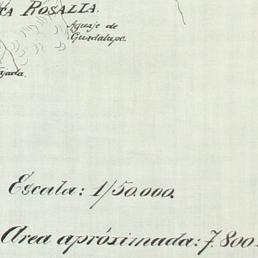 CA ROSALIA.
Aguaje de
Guadalupe.
ajada.
Escala: 1/50.000.
Area apróximada: 7.800